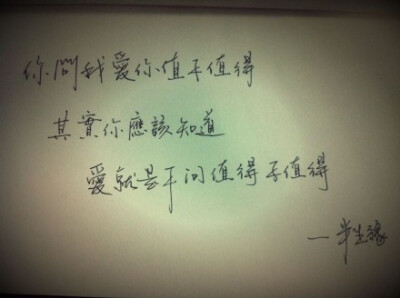 你問我愛你值不值得
其實你應該知道
愛就是不问值得不值得
—半生緣